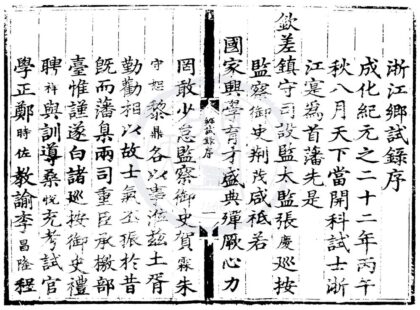 浙江鄉試錄序
成化紀元之二十二年丙午
秋八月天下當開科試士浙
江寔為首藩先是
欽差鎮守司設監太監張慶巡按
監察御史荆茂咸祗若
國家興學育才盛典殫厥心力
鄉試錄序
罔敢少怠監察御史賀霖朱
守恕黎鼎各以事涖茲土胥
勤勸相以故士氣丕振於昔
既而藩臬兩司重臣承檄部
臺惟謹遂白諸巡按御史禮
聘祥與訓導桑悅充考試官
學正鄭時佐教諭李昌隆程